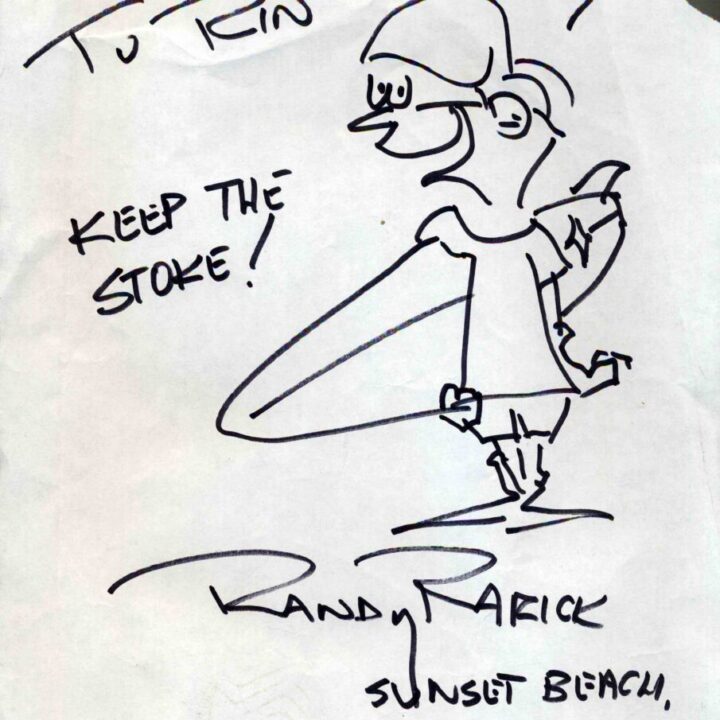 TO KIN
KEEP THE
STOKE!
RANDY RARICK
SUNSET BEACH,